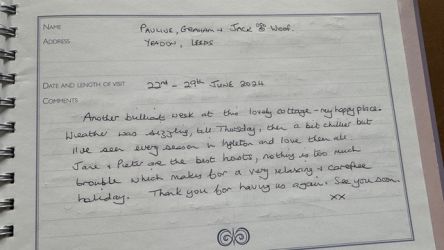 NAME PAULINE, GRAHAM + JACK Woof.
ADDRESS YEADON, LEEDS
DATE AND LENGTH OF VISIT 22nd - 29th JUNE 2024
COMMENTS
Another brilliant week at this lovely cottage - my happy place.
Weather was sizzling, till Thursday, then a bit chillier but
I've seen every season in Ingleton and love them all
Jane + Pieter are the best hosts, nothing is too much
trouble which makes for a very relaxing + carefree
holiday. Thank you for having us again. See you soon.
xx